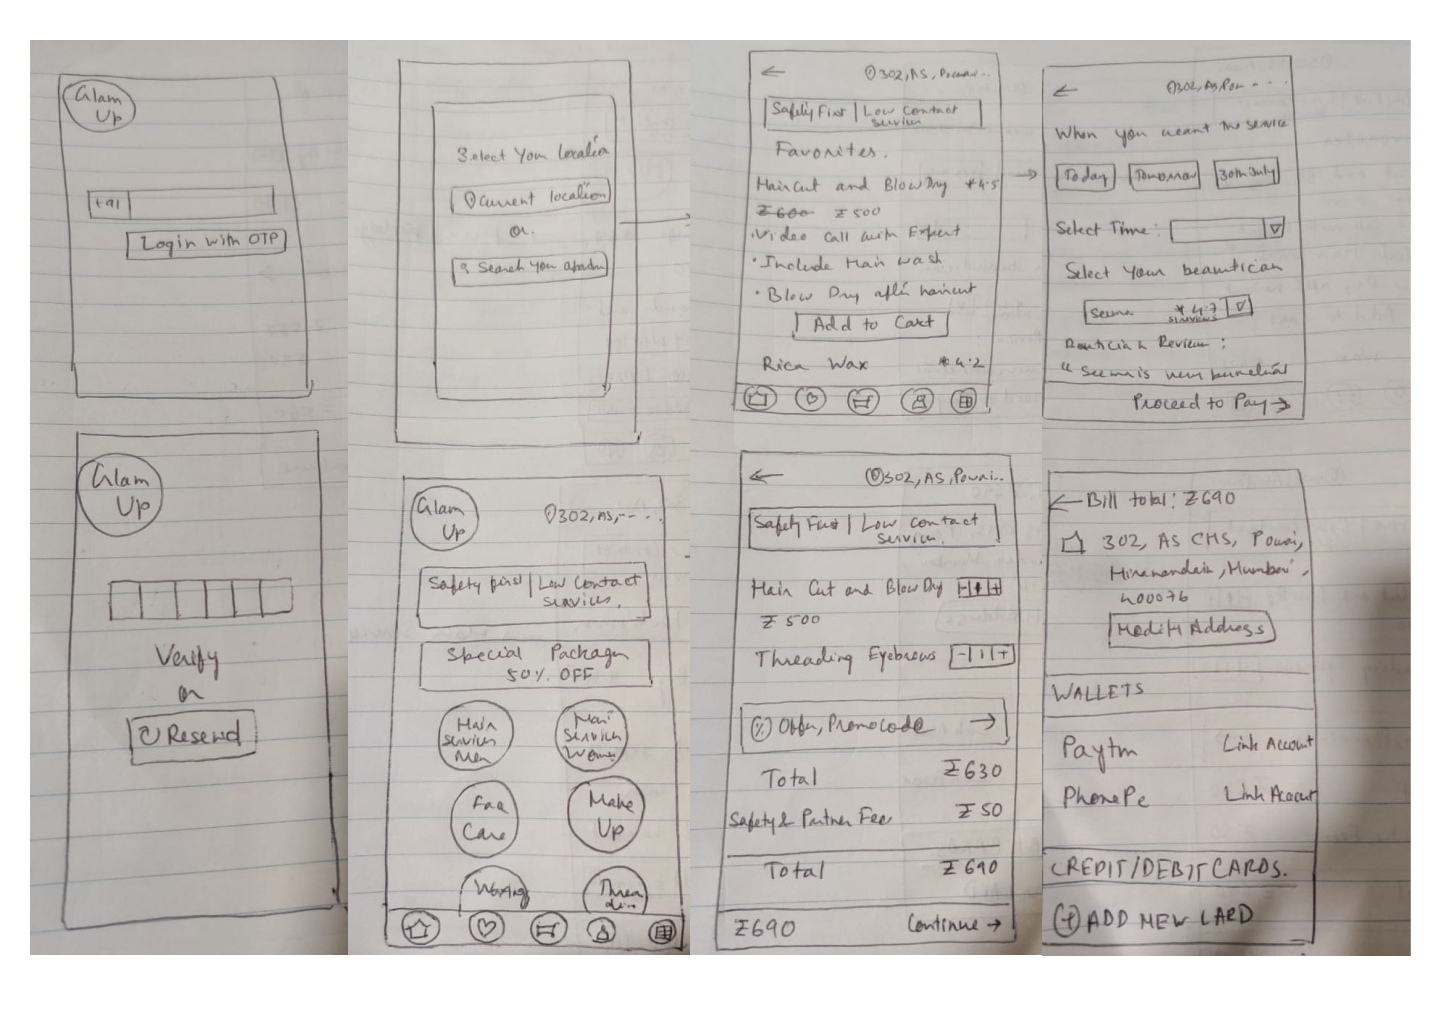 Glam
Up
+91
Login with OTP
Glam
Up
Verify
or
Resend
Select Your Location
Current location
or.
Search You
Glam
Up
302, AS, -- . .
Safety first | Low Contact
Services.
Special Packages
50% OFF
Hair
Services
Men
Hair
Services
Women
Face
Care
Make
Up
Waxing
Threa
din..
← 302, AS, Powai..
Safety First | Low Contact
Services
Favorites.
Hair Cut and Blow Dry * 4.5
₹600 ₹500
. Video Call with Expert
• Include Hair wash
• Blow Dry after haircut
Add to Cart
Rica Wax * 4.2
← 302, AS, Powai..
Safety First | Low Contact
Services.
Hair Cut and Blow Dry - 1 +
₹500
Threading Eyebrows - 1 +
% Offer, Promocode →
Total ₹630
Safety & Partner Fee ₹50
Total ₹690
₹690 Continue →
← 302, AS, Pow - - . .
When you want the service
Today Tomorrow 30th July
Select Time:
Select Your beautician
Seema * 4.7
Review:
" Seema is very punctual
Proceed to Pay →
← Bill total: ₹690
302, AS CHS, Powai,
Hiranandani, Mumbai,
400076
Modify Address
WALLETS
Paytm Link Account
PhonePe Link Account
CREDIT/DEBIT CARDS.
+ ADD NEW CARD